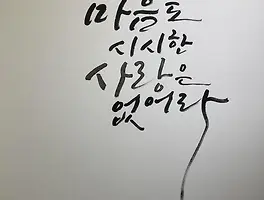 마음도
시시한
사랑은
없어라